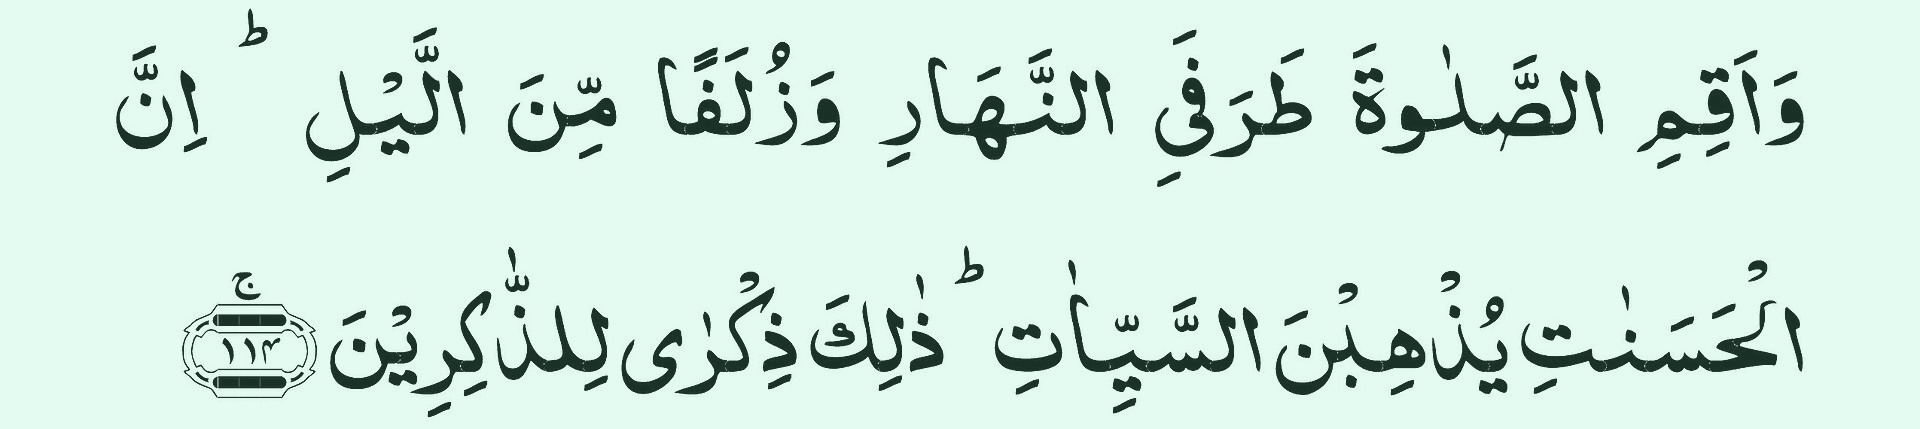 وَاَقِمِ الصَّلٰوةَ طَرَفَيِ النَّهَارِ وَزُلَفًا مِّنَ الَّيْلِ ؕ اِنَّ
الْحَسَنٰتِ يُذْهِبْنَ السَّيِّاٰتِ ؕ ذٰلِكَ ذِكْرٰى لِلذّٰكِرِيْنَ ۚ ۱۱۴